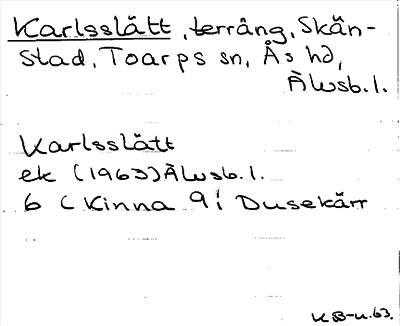 Karlsslätt, terräng, Skän-
stad, Toarps sn, Ås hd,
Älvsb.l.
Karlsslätt
ek (1963) Älvsb.l.
6 ( Kinna 9: Dusekärr